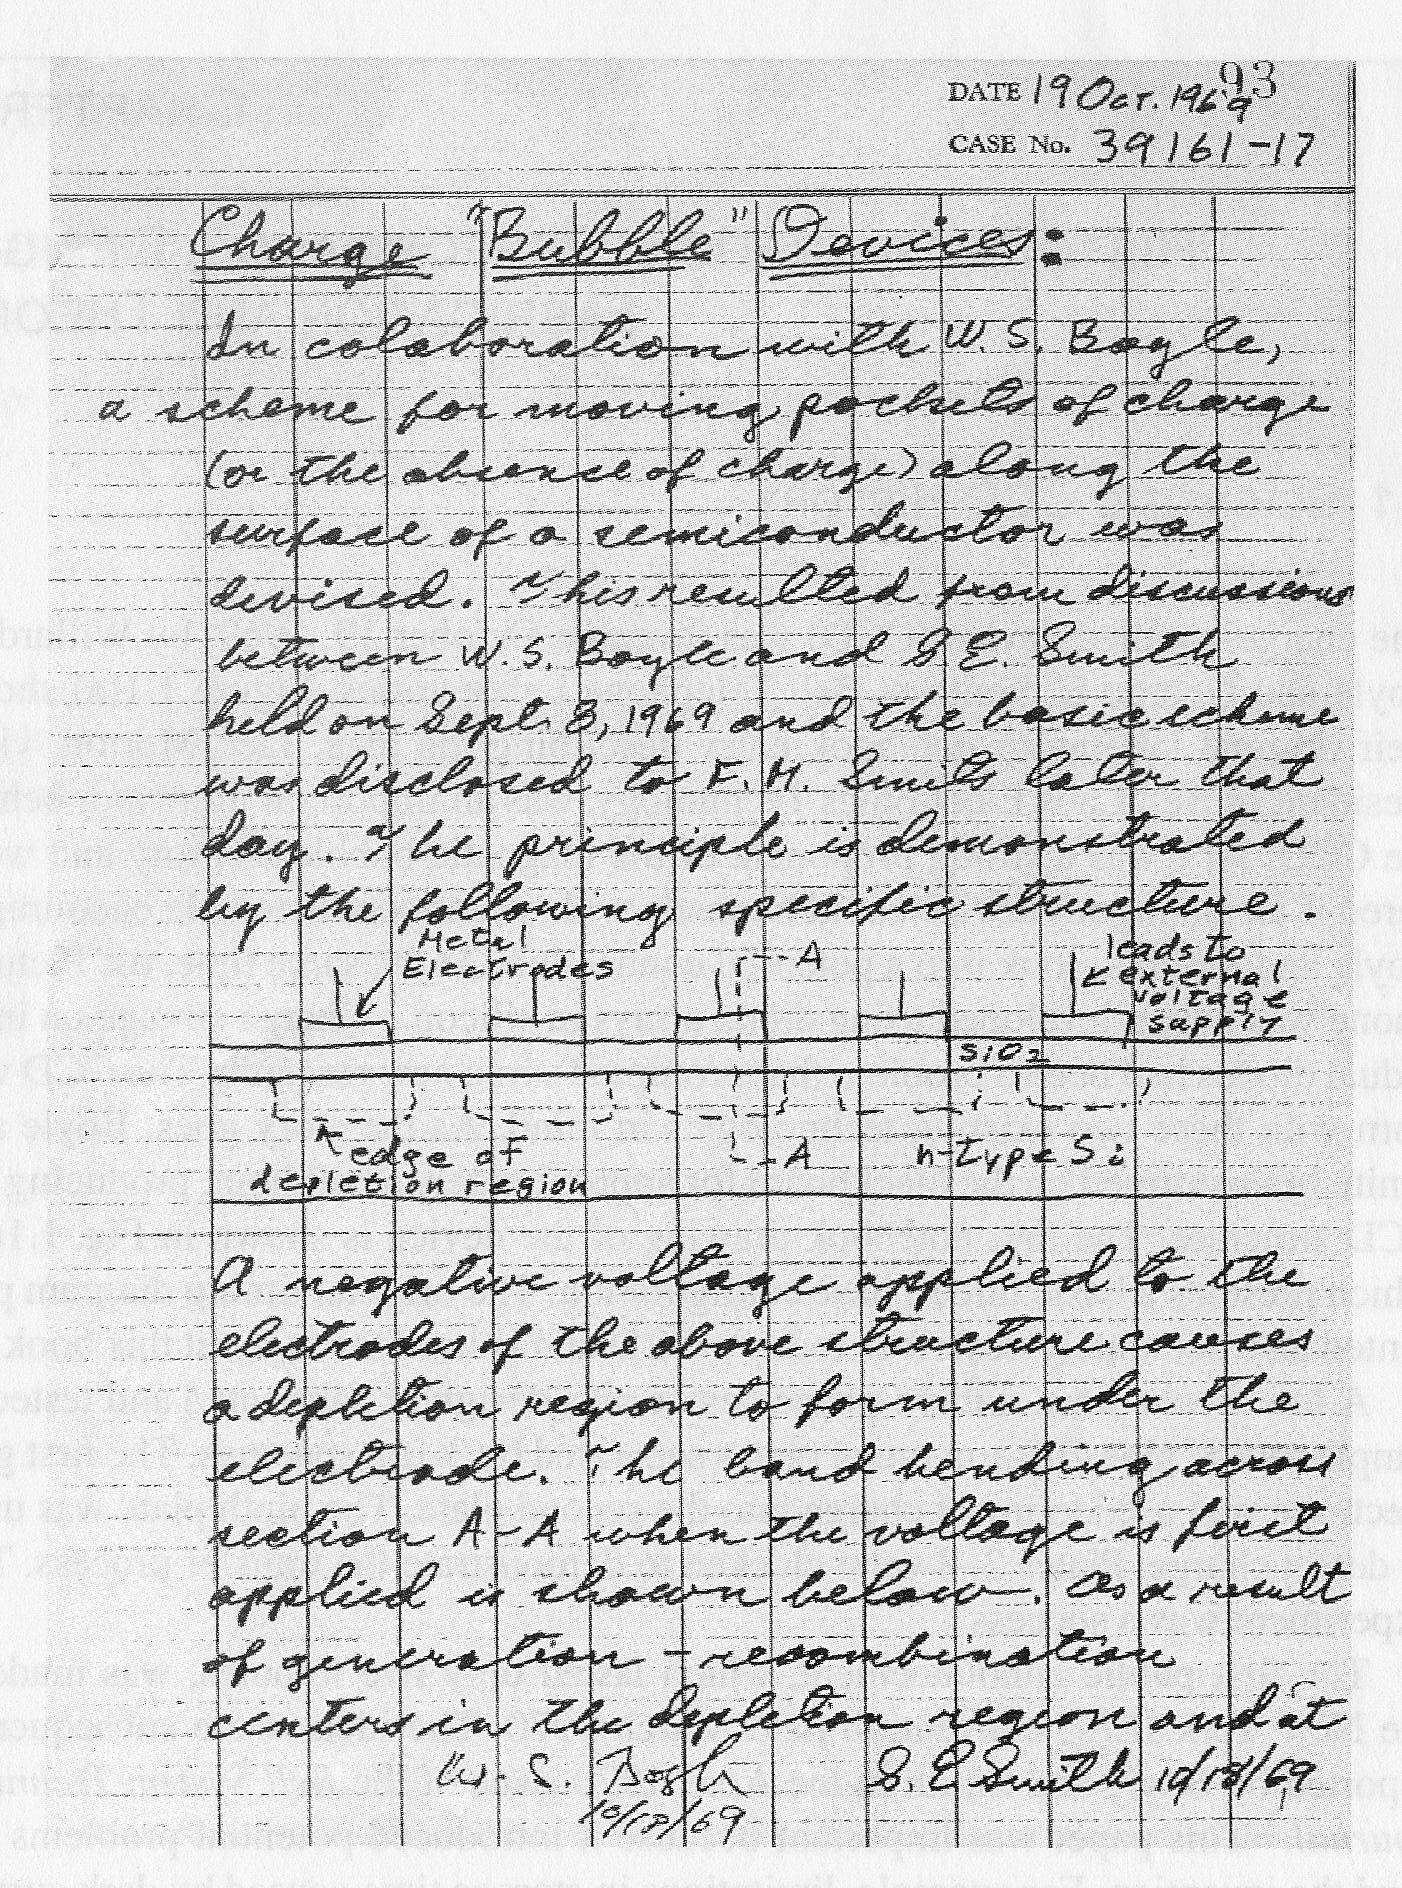 93
DATE 19 Oct. 1969
CASE No. 39161-17
Charge "Bubble" Devices:
In colaboration with W. S. Boyle,
a scheme for moving pockets of charge
(or the absence of charge) along the
surface of a semiconductor was
devised. This resulted from discussions
between W. S. Boyle and G E. Smith
held on Sept. 8, 1969 and the basic scheme
was disclosed to F. M. Smits later that
day. The principle is demonstrated
by the following specific structure.
Metal
Electrodes
A
leads to
external
voltage
supply
SiO2
edge of
depletion region
A
n-type Si
A negative voltage applied to the
electrodes of the above structure causes
a depletion region to form under the
electrode. The band bending across
section A-A when the voltage is first
applied is shown below. As a result
of generation - recombination
centers in the depletion region and at
W. S. Boyle G. E Smith 10/19/69
10/19/69